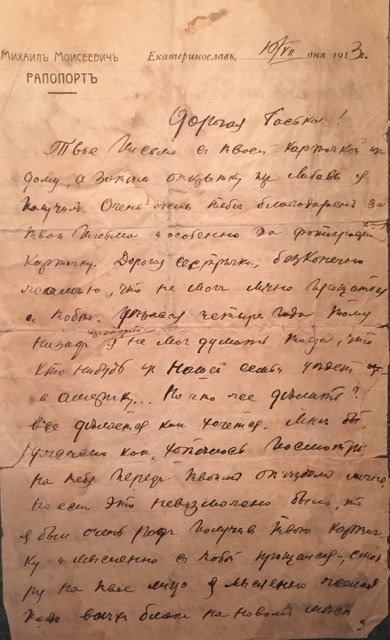 Михаилъ Моисеевичъ
РАПОПОРТЪ
Екатеринославъ, 10/VII дня 1913 г.
Дорогая Таська!
Твое письмо съ твоей карточкой из
дому, а затем открытку из Либавы я
получил. Очень очень тебя благодарен за
твои письма и особенно за фотографич
карточку. Дорогая сестричка, безконечно
жалею, что не могу лично прощаться
с тобою. Уезжая четыре года тому
назад я не мог думать тогда, что
кто нибудь из нашей семьи уедет
в америку... Но что же делать?
все делается как хочется. Мне бы,
конечно как, хотелось посмотреть
на тебя перед твоим отъездом лично,
но если это невозможно было, то
я был очень рад получив твою карточ-
ку и мысленно с тобой прощался, смот
рю на твое лицо и мысленно желал
тебе всяких благ на новом месте